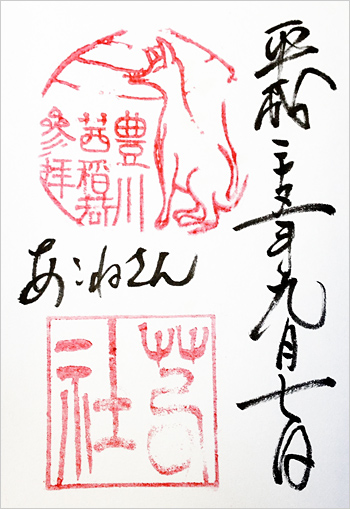 平成二十五年九月七日
豊川
茜稲荷
參拝
あこねさん
茜
社